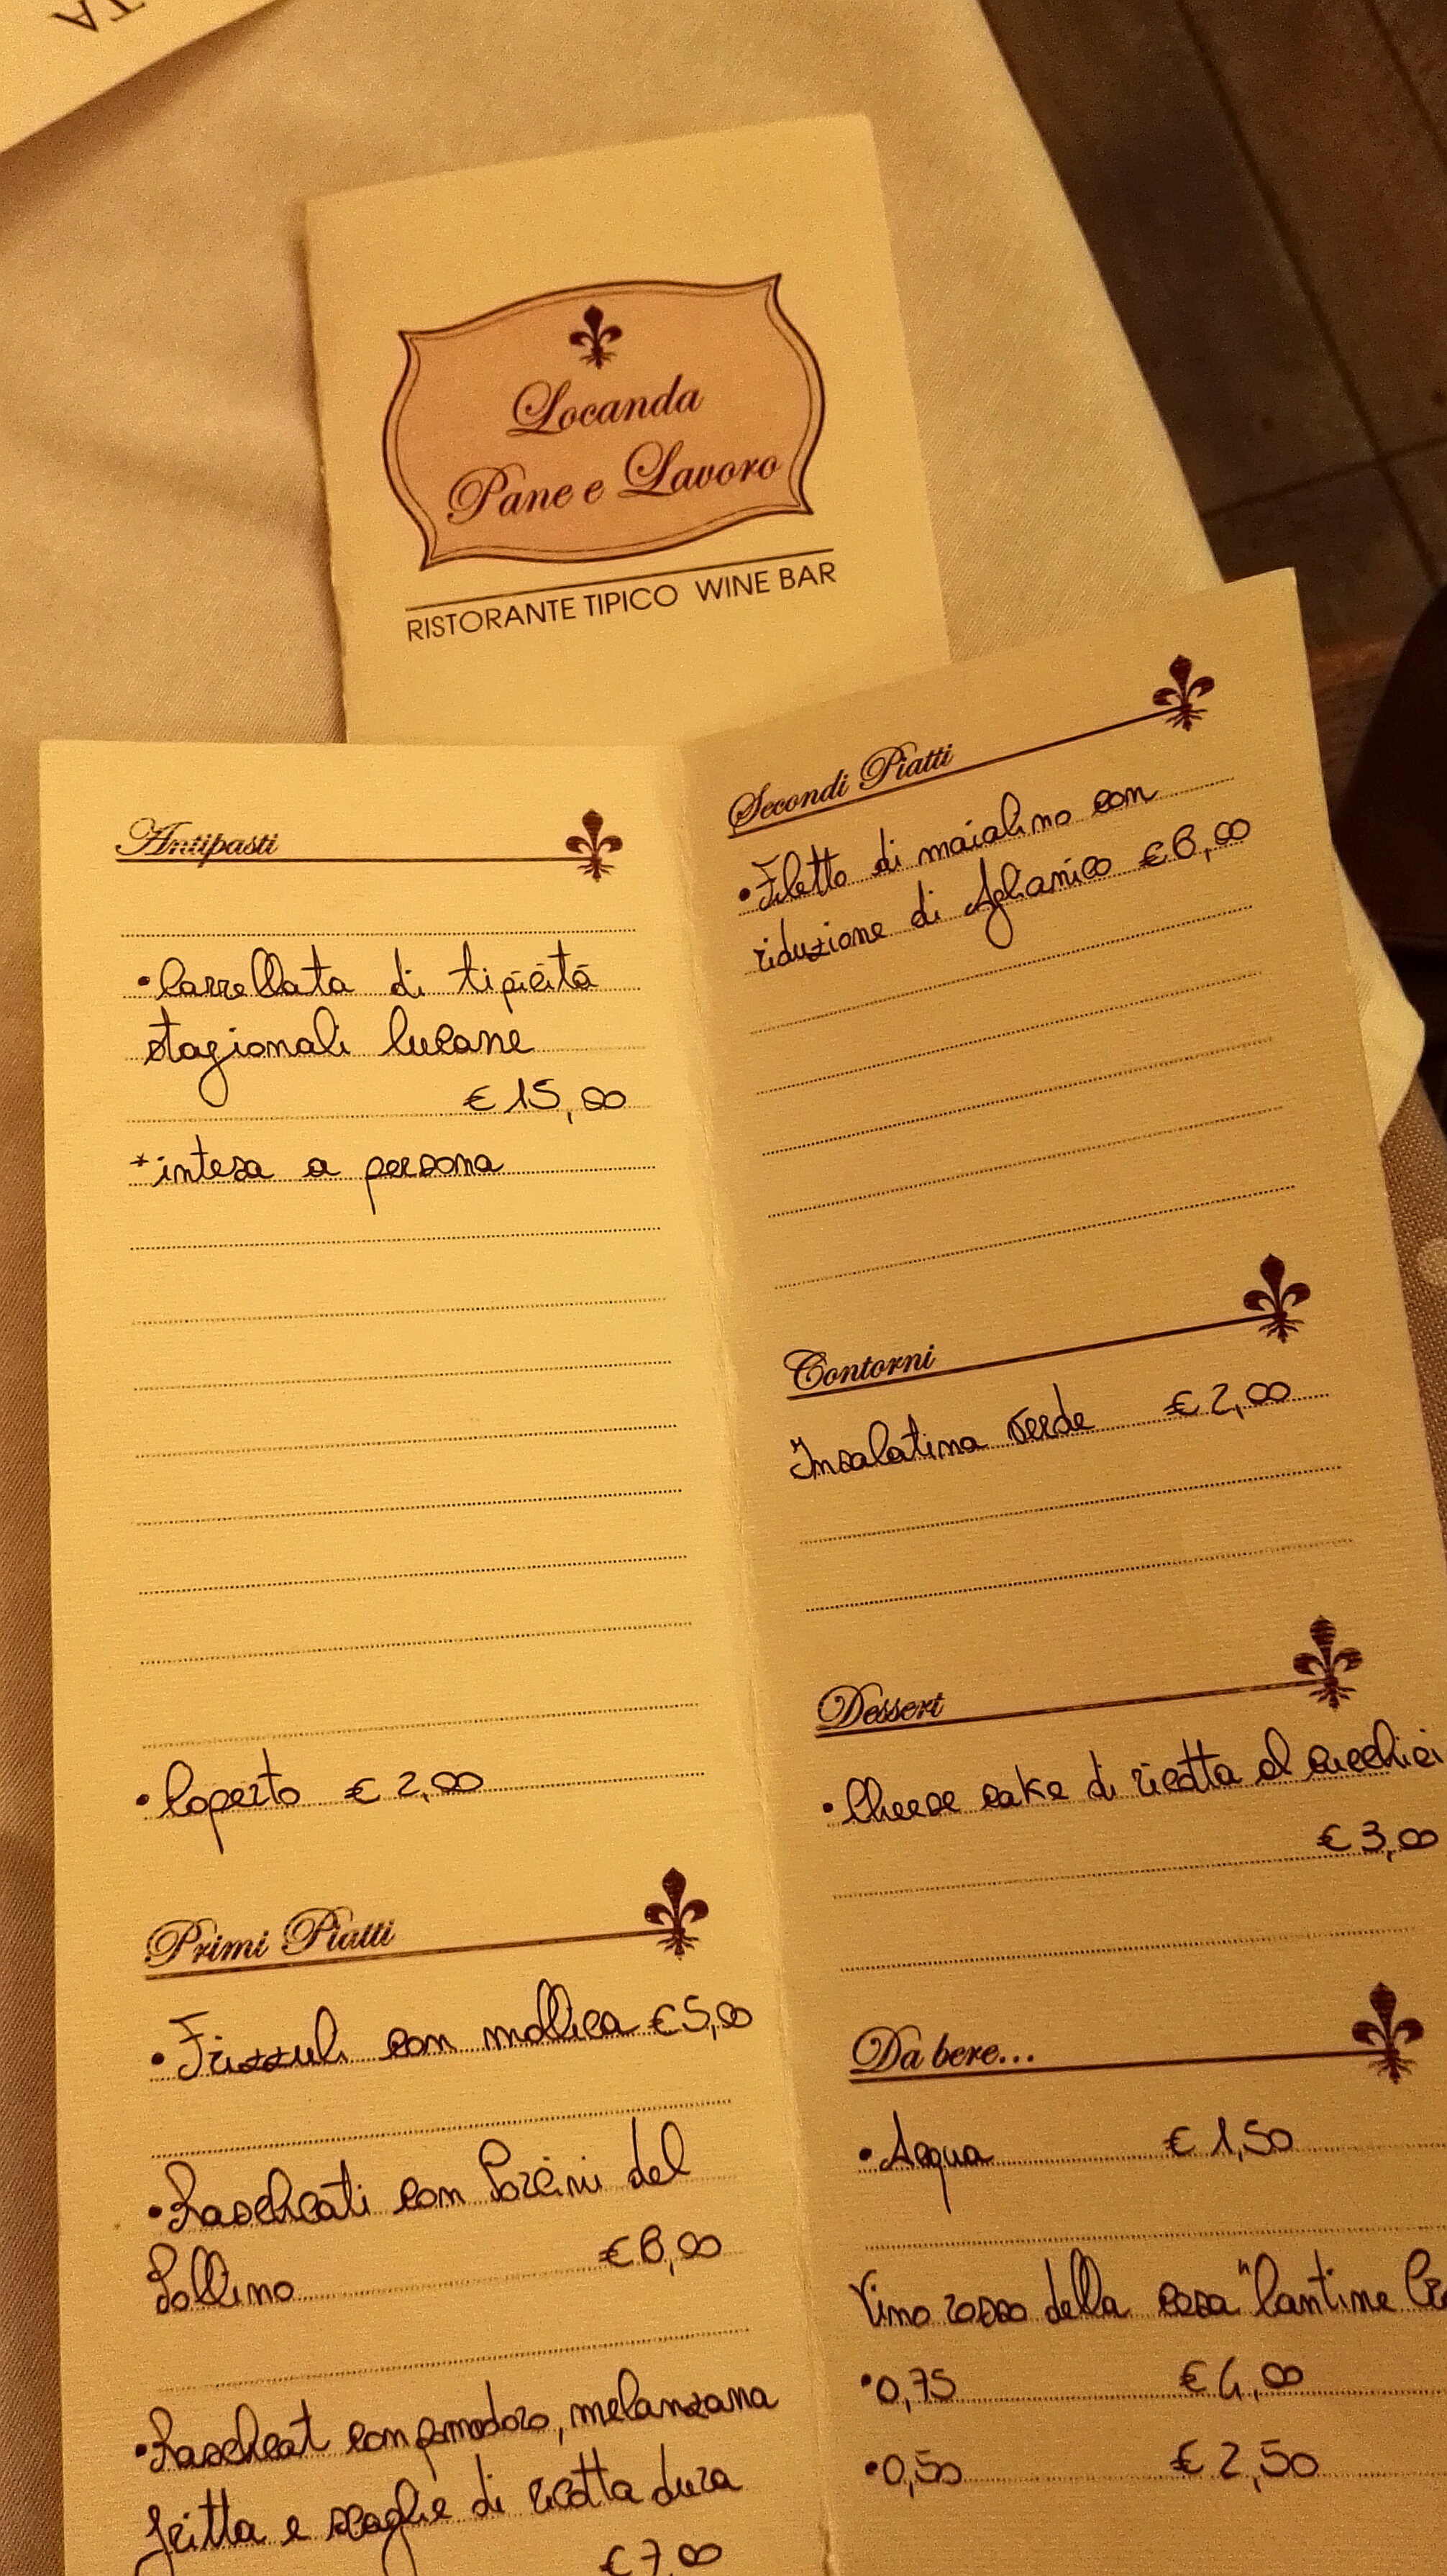 TA
Locanda
Pane e Lavoro
RISTORANTE TIPICO WINE BAR
Antipasti
•Carrellata di tipicità
stagionali lucane
€ 15,00
*intesa a persona
•Coperto € 2,00
Primi Piatti
•Frizzuli con mollica €5,00
•Raschcati con Porcini del
Pollino €6,00
•Raschcat con pomodoro, melanzana
fritta e scaglie di ricotta dura
€7,00
Secondi Piatti
•Filetto di maialino con
riduzione di Aglianico €6,00
Contorni
Insalatina verde € 2,00
Dessert
•Cheese cake di ricotta al
€ 3,00
Da bere...
•Acqua € 1,50
Vino rosso della casa "Cantine
•0,75 € 4,00
•0,50 € 2,50